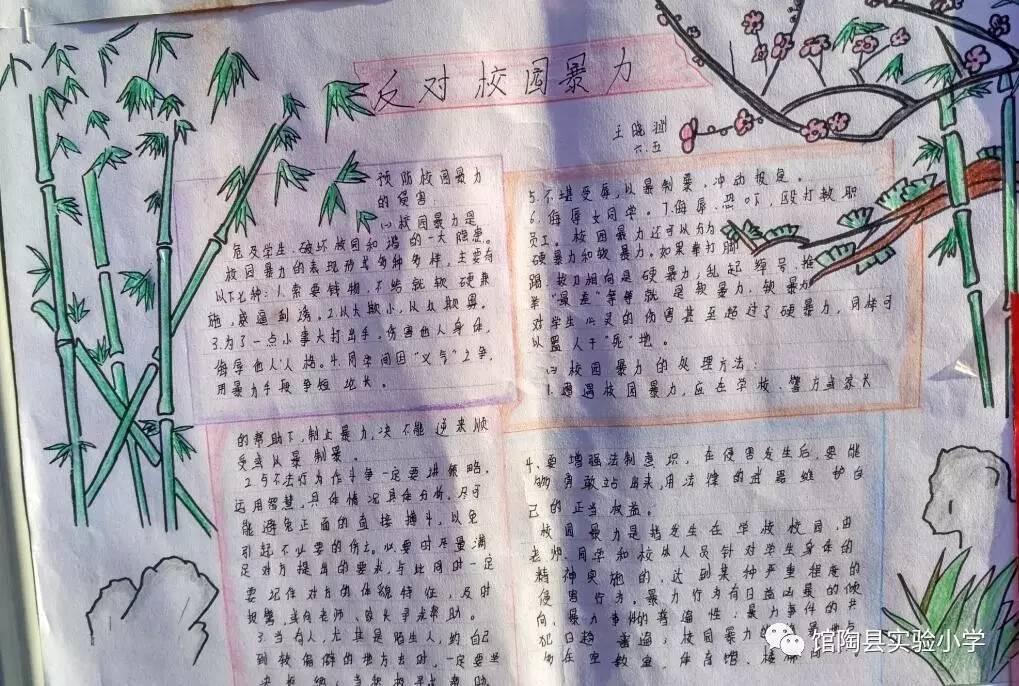 反对校园暴力
王晓
六.五
预防校园暴力
的侵害
(1)校园暴力是
危及学生、破坏校园和谐的一大隐患。
校园暴力的表现形式多种多样,主要有
以下七种:1.索要钱物,不给就软硬兼
施,威逼利诱。2.以大欺小,以众欺寡。
3.为了一点小事大打出手,伤害他人身体,
侮辱他人人格。4.同学间因“义气”之争,
用暴力手段争短论长。
5.不堪受辱,以暴制暴,冲动报复。
6.侮辱女同学。7.侮辱、恐吓、殴打教职
员工。校园暴力还可以分为
硬暴力和软暴力。如果拳打脚
踢、拔刀相向是硬暴力,乱起绰号,推
举“最差”等等就是软暴力。软暴力
对学生心灵的伤害甚至超过了硬暴力,同样可
以置人于“死”地。
校园暴力的处理方法:
1.遭遇校园暴力,应在学校、警方或家长
的帮助下,制止暴力,决不能逆来顺
受或以暴制暴。
2.与不法行为作斗争一定要讲策略,
运用智慧,具体情况具体分析,尽可
能避免正面的直接搏斗,以免
引起不必要的伤亡。必要时尽量满
足对方提出的要求,与此同时一定
要记住对方的体貌特征,及时
报警,或向老师、家长寻求帮助。
3.当有人,尤其是陌生人,约自己
到较偏僻的地方去时,一定要坚
4、要增强法制意识,在侵害发生后,要能
够勇敢站出来,用法律的武器维护自
己的正当权益。
校园暴力是指发生在学校校园,由
老师、同学和校外人员针对学生身体的
精神实施的、达到某种严重程度的
侵害行为。暴力行为有日益凶暴的倾
向,暴力事件的普遍性,暴力事件的共
犯日趋普遍,校园暴力
馆陶县实验小学